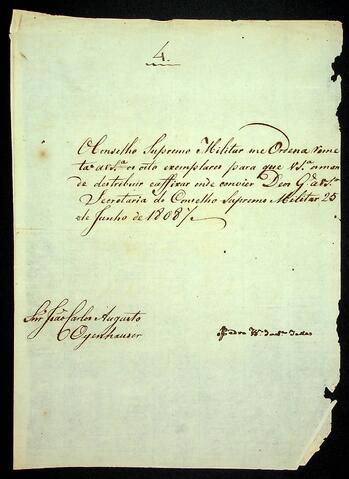 4.
O Conselho Supremo Militar me Ordena reme
ta a V.S.ª os oito exemplares para que V.S.ª os man
de destribuir e affixar onde convier Deos G.e a V.S.ª
Secretaria do Conselho Supremo Militar 25
de Junho de 1808
Snr João Carlos Augusto
Oyenhauser
Pedro